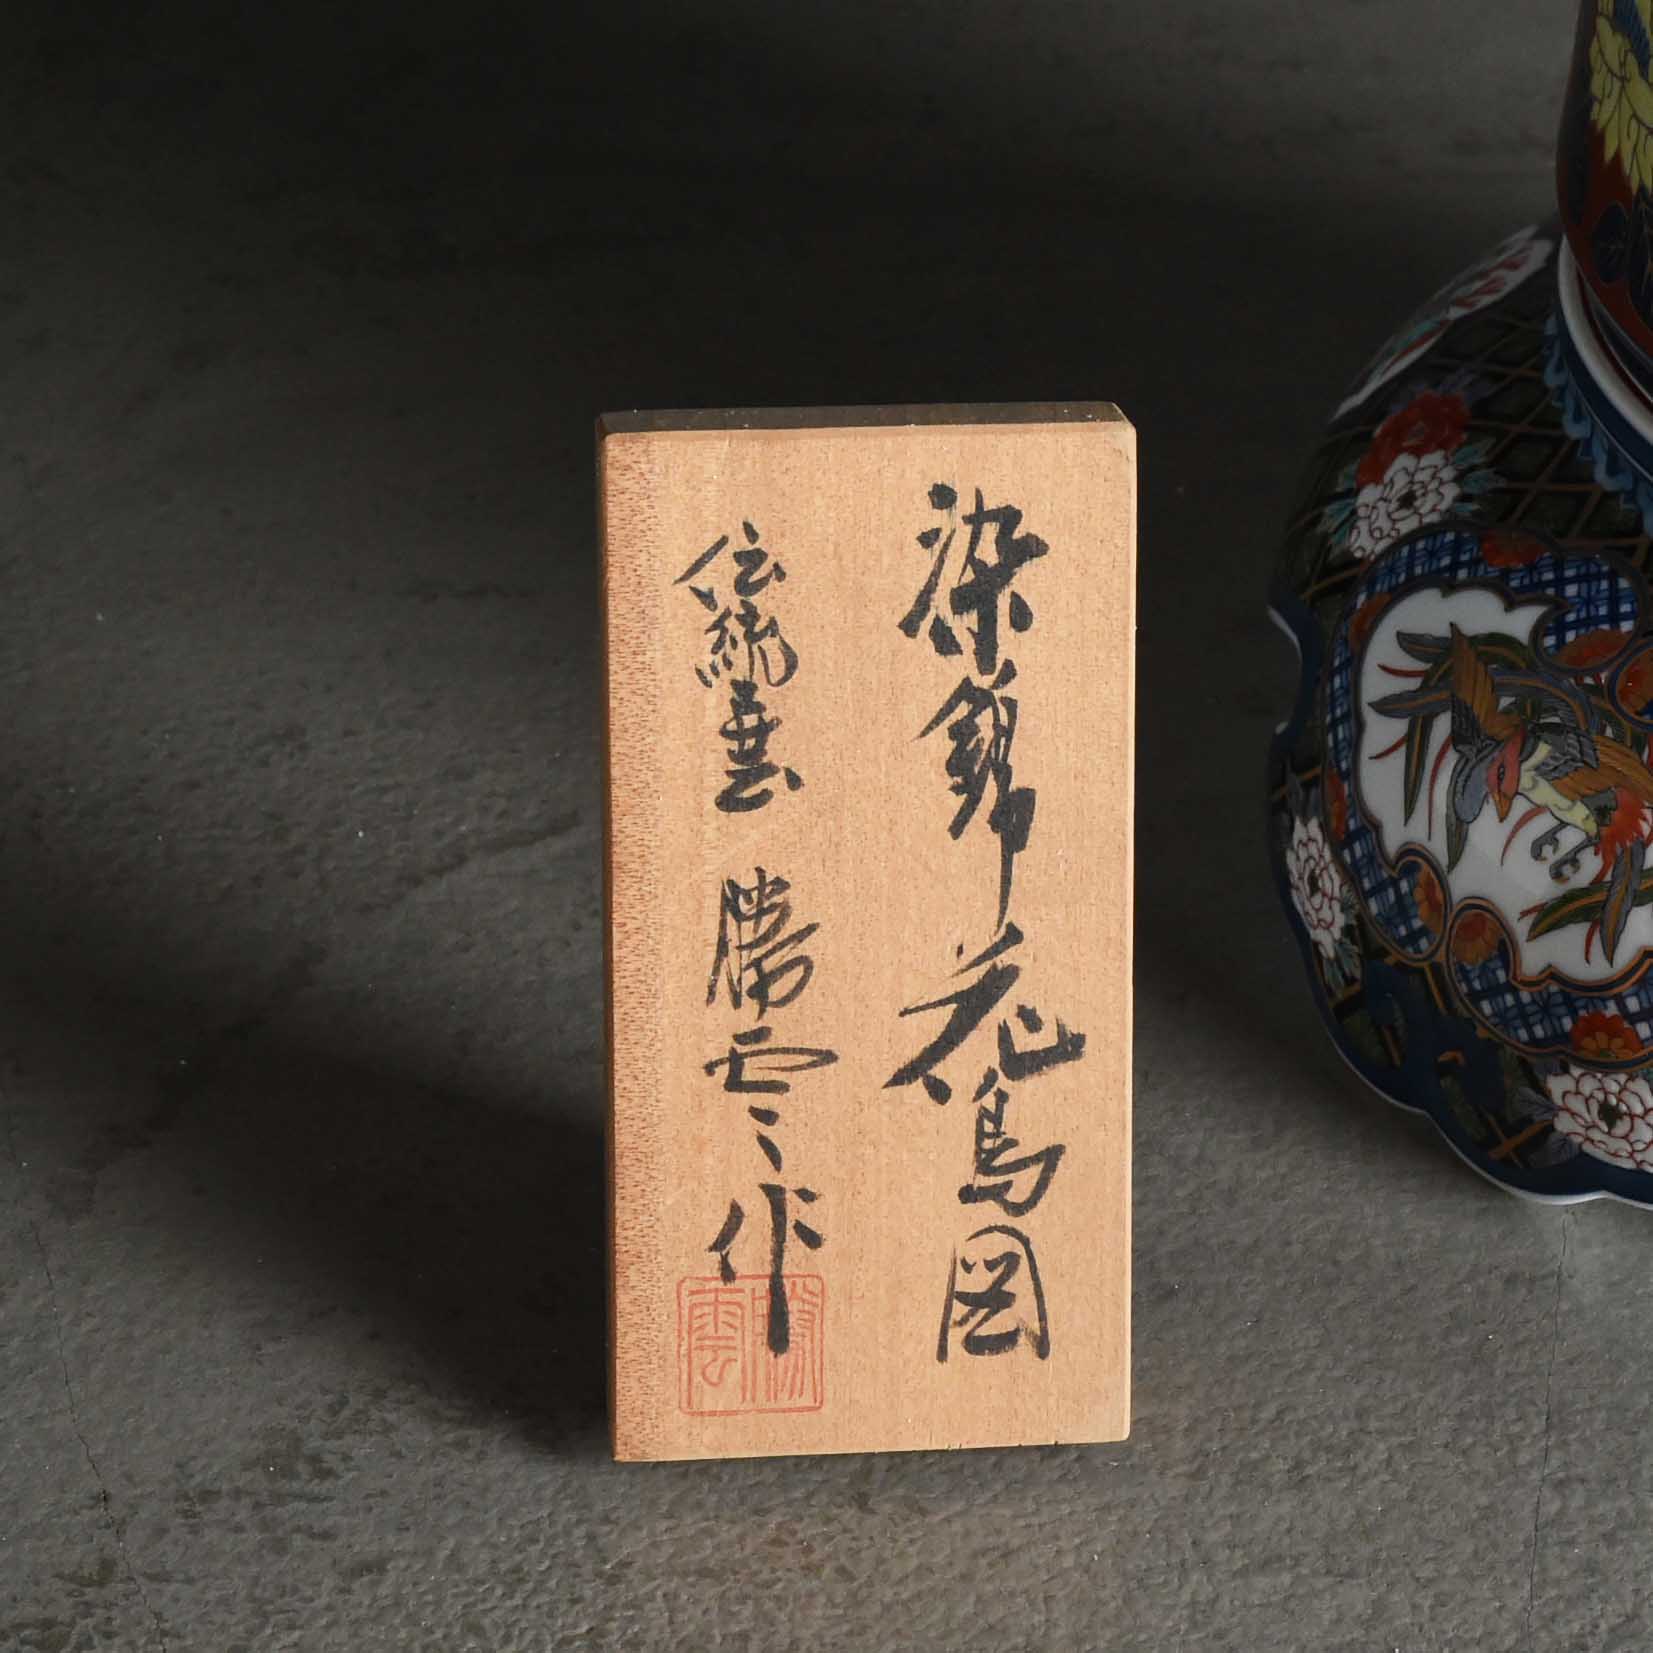 染錦花鳥図
伝統工芸 勝雲作
勝雲